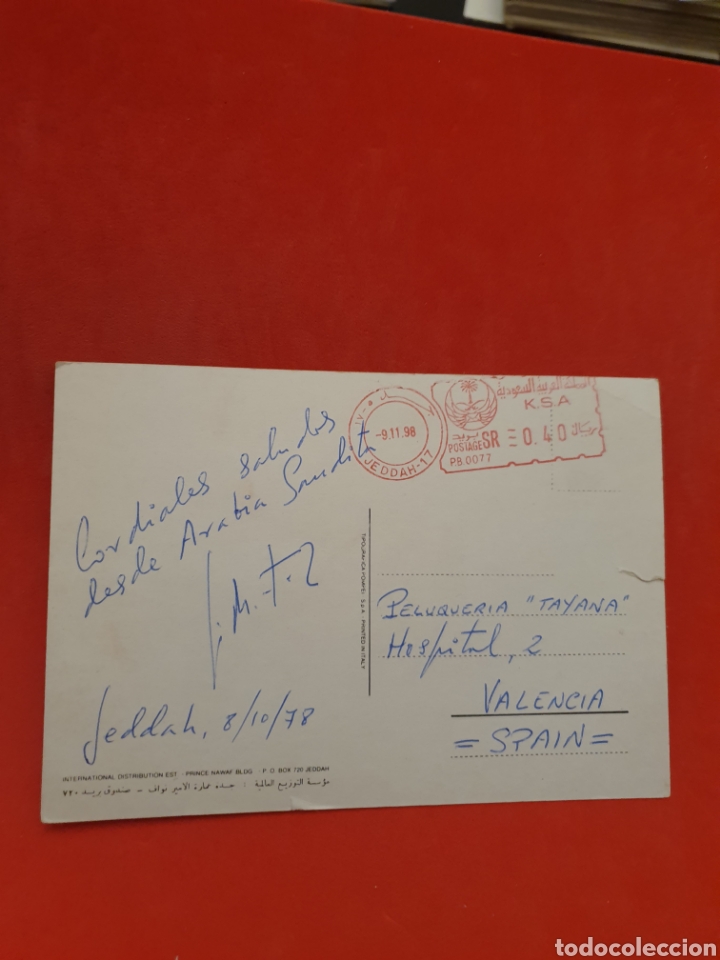 Cordiales saludos
desde Arabia Saudita
Jeddah, 8/10/78
INTERNATIONAL DISTRIBUTION EST. - PRINCE NAWAF BLDG. - P. O. BOX 720 JEDDAH
مؤسسة التوزيع العالمية : جدة عمارة الامير نواف - صندوق بريد ٧٢٠
PRINTED IN ITALY
-9.11.98
JEDDAH-17
المملكة العربية السعودية
K.S.A
بريد
POSTAGE SR = 0.40 ريال
PB.0077
PELUQUERIA "TAYANA"
Hospital, 2
VALENCIA
= SPAIN =
todocoleccion